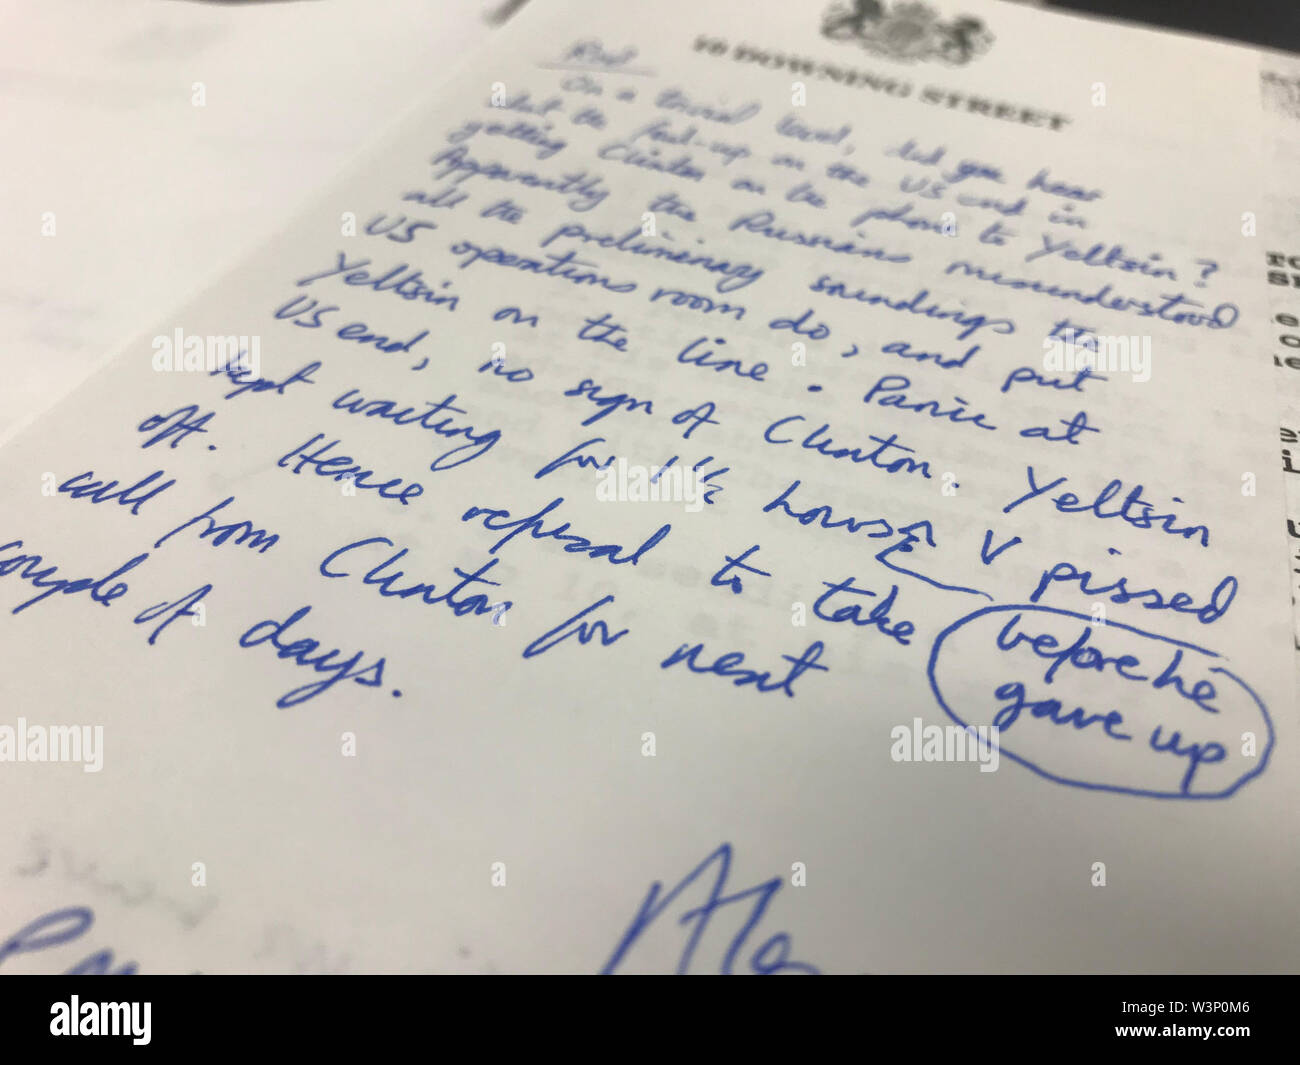 10 DOWNING STREET
Rod
On a trivial level, did you hear
about the foul-up on the US end in
getting Clinton on the phone to Yeltsin?
Apparently the Russians misunderstood
all the preliminary soundings the
US operations room do, and put
Yeltsin on the line. Panic at
US end, no sign of Clinton. Yeltsin
kept waiting for 1½ hours V pissed
off. Hence refusal to take
before he
gave up
call from Clinton for next
couple of days.
alamy
Image ID: W3P0M6
www.alamy.com